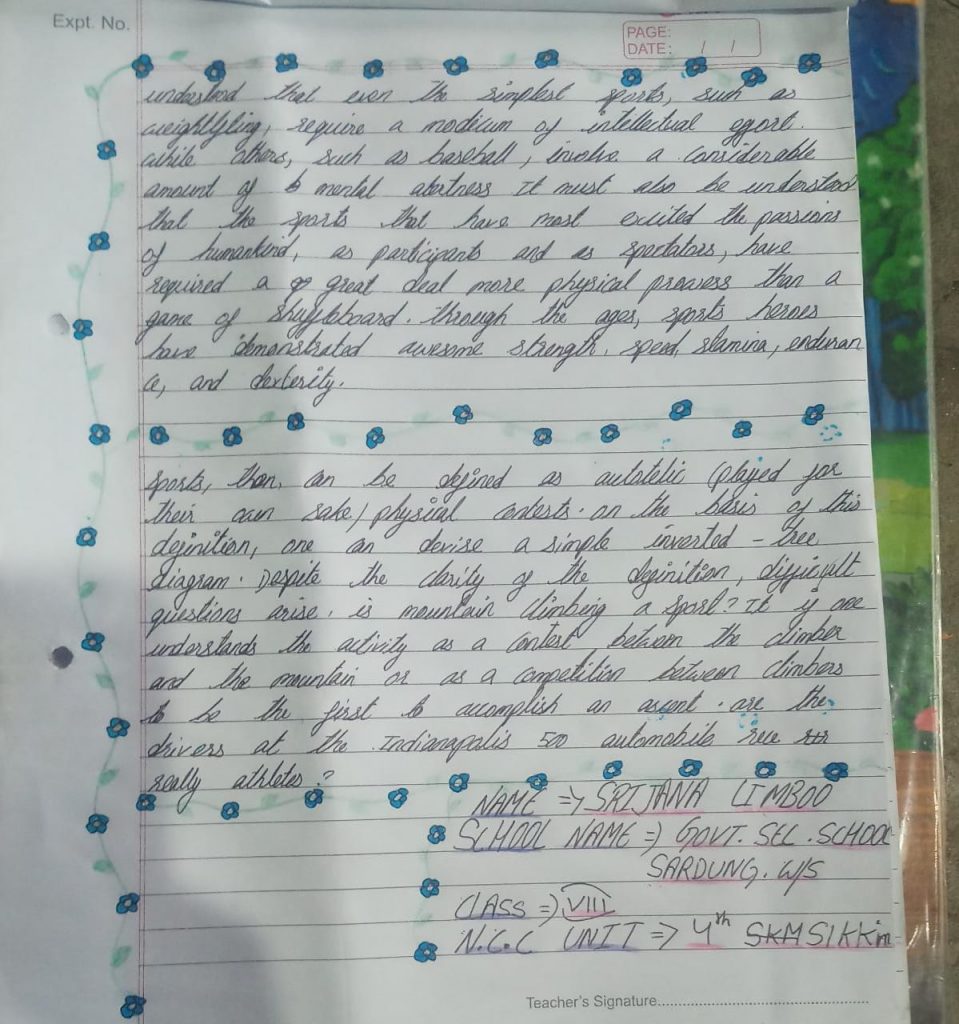 Expt. No.
PAGE:
DATE: / /
understood that even the simplest sports, such as
weightlifting, require a modicum of intellectual effort.
while others, such as baseball, involve a considerable
amount of mental alertness It must also be understood
that the sports that have most excited the passions
of humankind, as participants and as spectators, have
required a great deal more physical prowess than a
game of shuffleboard. through the ages, sports heroes
have demonstrated awesome strength, speed, stamina, enduran
ce, and dexterity.
sports, then, can be defined as autotelic (played for
their own sake) physical contests. on the basis of this
definition, one can devise a simple inverted - tree
diagram. Despite the clarity of the definition, difficult
questions arise. is mountain climbing a sport? It if one
understands the activity as a contest between the climber
and the mountain or as a competition between climbers
to be the first to accomplish an ascent. are the
drivers at the Indianapolis 500 automobile race
really athletes?
NAME => SRIJANA LIMBOO
SCHOOL NAME => GOVT. SEC. SCHOOL
SARDUNG. W/S
CLASS => VIII
N.C.C UNIT => 4th SKM SIKKim
Teacher's Signature